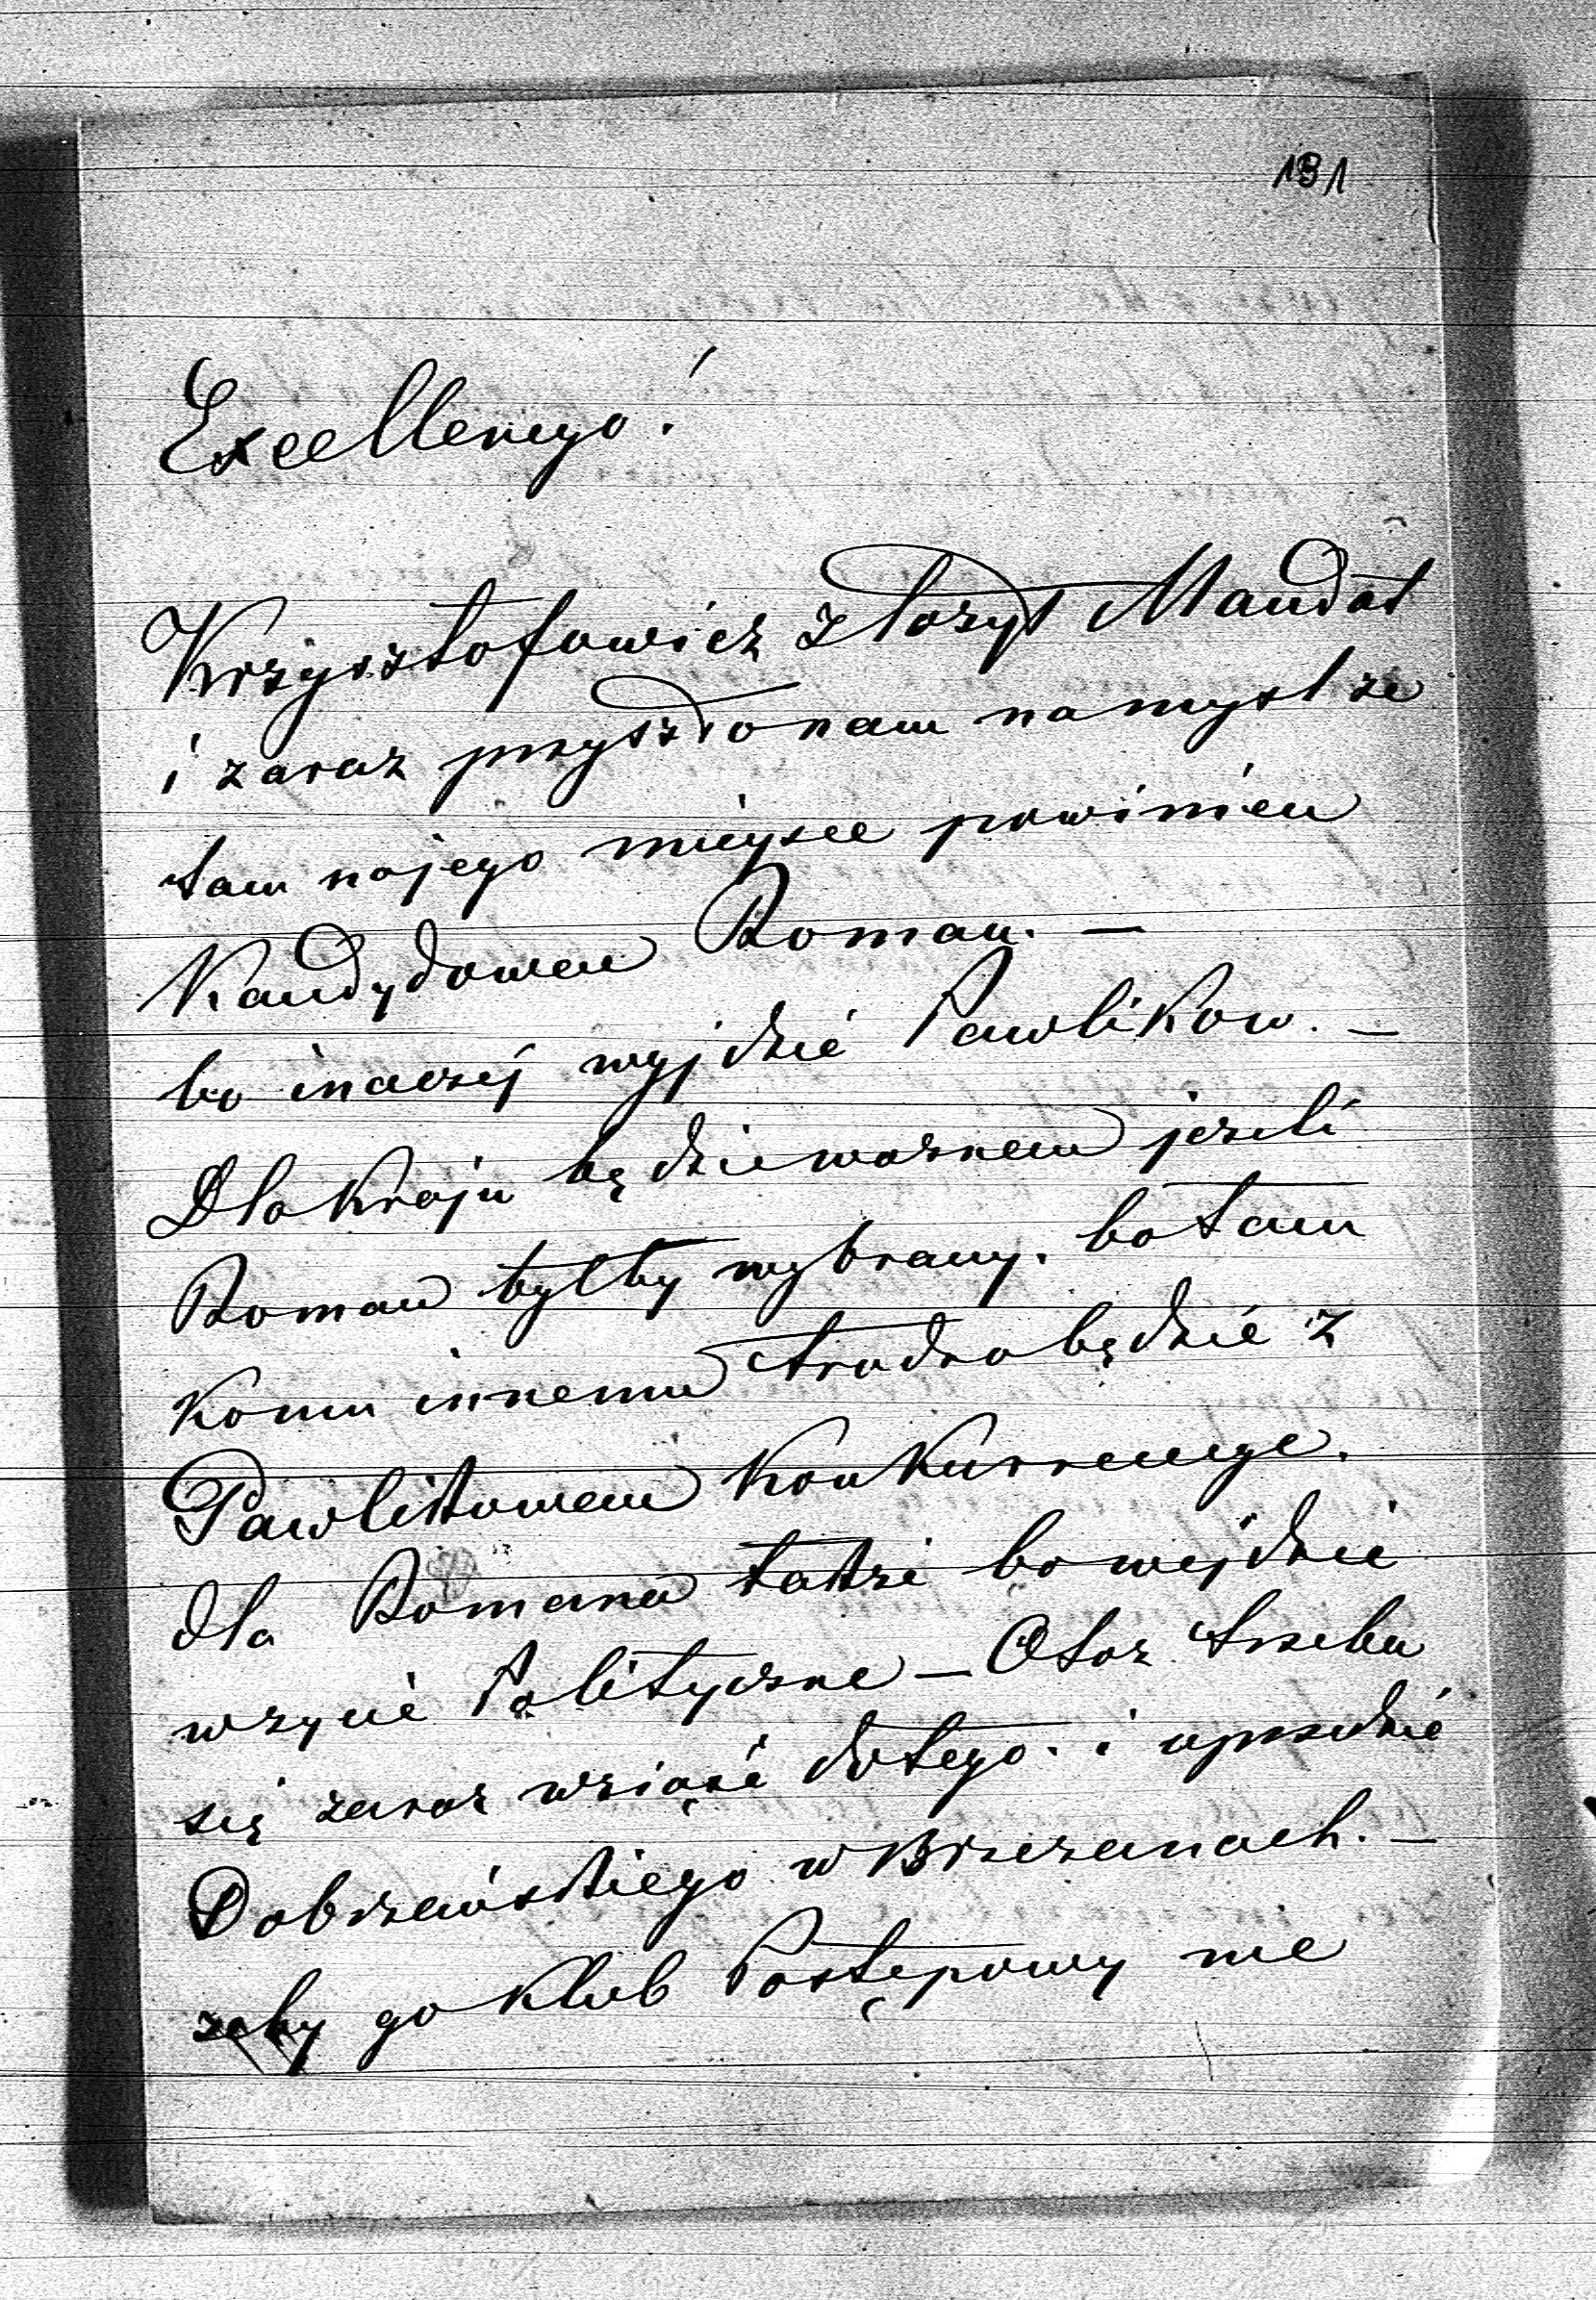 131
Excellencyo!
Krzysztofowicz złożył Mandat
i zaraz przyszło nam na myśl że
tam na jego miejsce powinien
Kandydować Roman. —
bo inaczéj wyjdzié Pawlikow. —
Dla Kraju będzie ważnem jeżeli
Roman byłby wybrany. bo tam
Komu innemu trudno będzié z
Pawlikowem Konkurrencye.
dla Romana także bo wejdzie
w życie Polityczne — Otoż trzeba
się zaraz wziąść do tego. i uprzedzić
Dobrzańskiego w Brzeżanach. —
żeby go Klub Postępowy nie